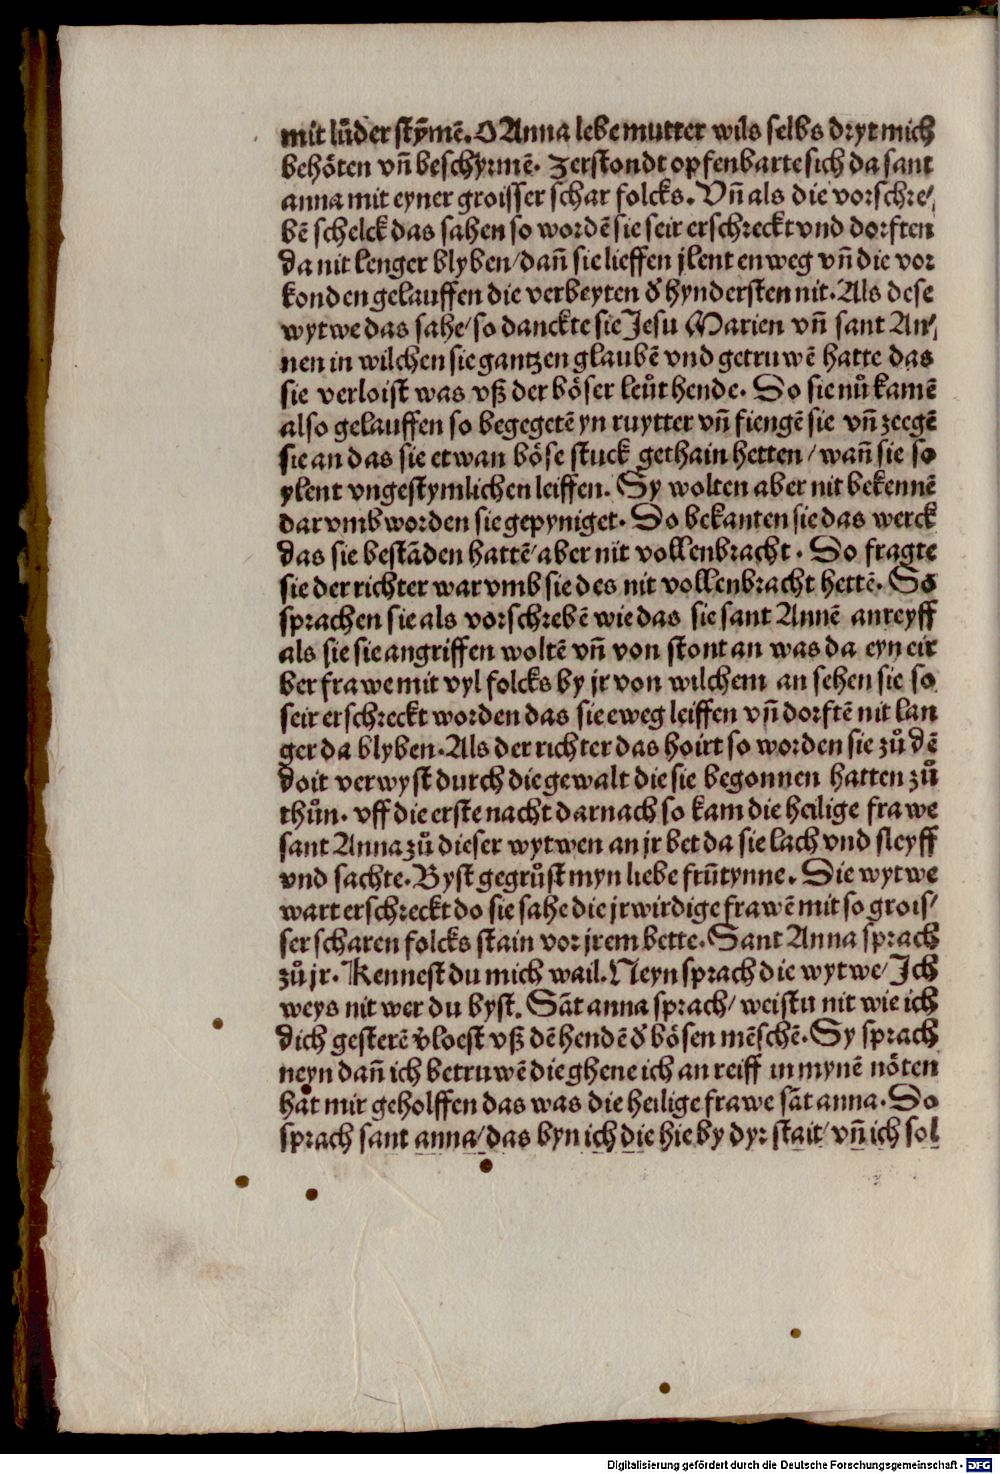 mit lůder stȳmē. O Anna lebe mutter wils selbs dryt mich
behöten vn̄ beschyrmē. Zerstondt opfenbarte sich da sant
anna mit eyner groisser schar folcks. Vn̄ als die vorschre/
bē schelck das sahen so wordē sie seir erschreckt vnd dorften
da nit lenger blyben/ dan̄ sie lieffen jlent en weg vn̄ die vor
konden gelauffen die verbeyten d̕ hyndersten nit. Als dese
wytwe das sahe/ so danckte sie Jesu Marien vn̄ sant An/
nen in wilchen sie gantzen glaubē vnd getruwē hatte das
sie verloist was vß der böser leůt hende. Do sie nů kamē
also gelauffen so begegetē yn ruytter vn̄ fiengē sie vn̄ zeegē
sie an das sie etwan böse stuck gethain hetten/ wan̄ sie so
ylent vngestymlichen leiffen. Sy wolten aber nit bekennē
darvmb worden sie gepyniget. Do bekanten sie das werck
das sie bestāden hattē/ aber nit vollenbracht. Do fragte
sie der richter warvmb sie des nit vollenbracht hettē. So
sprachen sie als vorschrebē wie das sie sant Annē anreyff
als sie sie angriffen woltē vn̄ von stont an was da eyn eir
ber frawe mit vyl folcks by jr von wilchem an sehen sie so
seir erschreckt worden das sie eweg leiffen vn̄ dorftē nit lan
ger da blyben. Als der richter das hoirt so worden sie zů dē
doit verwyst durch die gewalt die sie begonnen hatten zů
thůn. vff die erste nacht darnach so kam die heilige frawe
sant Anna zů dieser wytwen an jr bet da sie lach vnd sleyff
vnd sachte. Byst gegrůst myn liebe frūtynne. Die wytwe
wart erschreckt do sie sahe die jrwirdige frawē mit so grois/
ser scharen folcks stain vor jrem bette. Sant Anna sprach
zů jr. Kennest du mich wail. Neyn sprach die wytwe/ Ich
weys nit wer du byst. Sāt anna sprach/ weistu nit wie ich
dich gesterē v̕loest vß dē hendē d̕ bösen mēschē. Sy sprach
neyn dan̄ ich betruwē die ghene ich an reiff in mynē nöten
hat mir geholffen das was die heilige frawe sāt anna. Do
sprach sant anna/ das byn ich die hie by dyr stait/ vn̄ ich sol
Digitalisierung gefördert durch die Deutsche Forschungsgemeinschaft - DFG